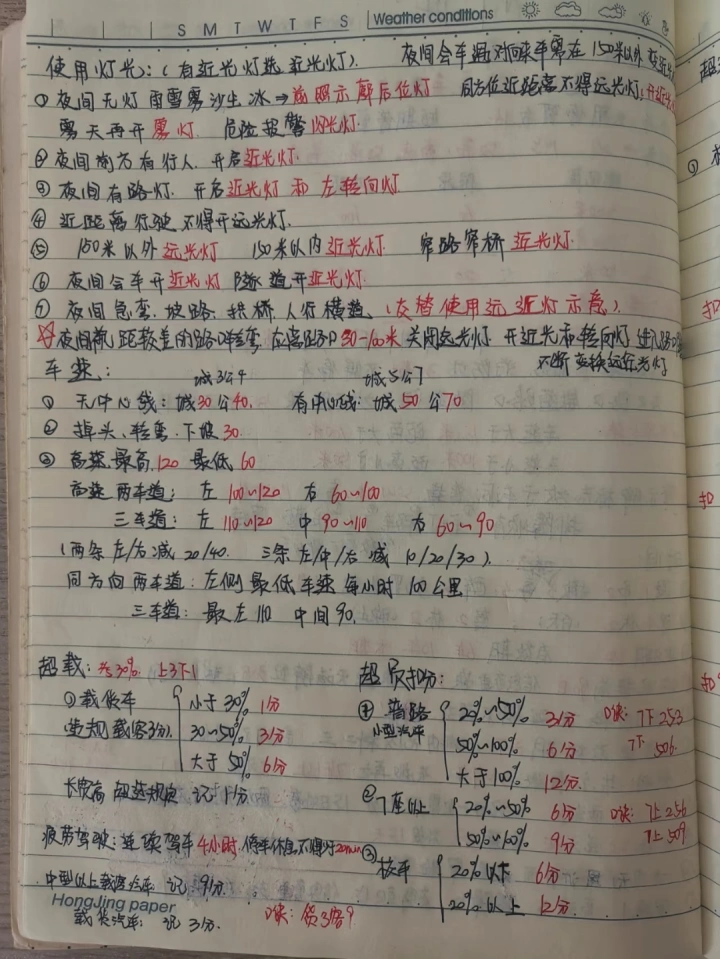 S M T W T F S Weather conditions
使用灯光：（有近光灯选近光灯）． 夜间会车遇对向来车需在150米以外变近光
①夜间无灯 雨雪雾沙尘冰→前照示廓后位灯 同方位近距离不得远光灯
雾天再开雾灯． 危险报警闪光灯．
②夜间前方有行人．开启近光灯．
③夜间有路灯．开启近光灯和左转向灯
④近距离行驶不得开远光灯．
⑤ 150米以外远光灯 150米以内近光灯 窄路窄桥近光灯．
⑥夜间会车开近光灯 隧道开近光灯．
⑦夜间急弯．坡路．拱桥．人行横道．（交替使用远近灯示意）．
☆夜间 距较差的路口转弯．在离路口50-100米关闭远光灯 开近光和转向灯 进入路口
不断变换远近光灯
车速：
城3公4 城5公7
①无中心线：城30公40． 有中心线：城50公70
②掉头、转弯．下坡30．
③高速．最高．120 最低60
高速 两车道： 左100~120 右60~100
三车道： 左110~120 中90~110 右60~90
（两条左/右减20/40． 三条左/中/右 减10/20/30）．
同方向两车道：左侧最低车速每小时100公里
三车道：最左110 中间90．
超载：
①载货车
小于30% 1分
违规载客3分．
30~50% 3分
大于50% 6分
长宽高 规定 记1分．
疲劳驾驶：连续驾车4小时．停车休息不得少20min
中型以上载客汽车 记9分．
载货汽车：记3分．
超员扣分：
①普路
小型汽车
20%~50% 3分
50%~100% 6分
大于100% 12分
口诀：7下253
7下506
②7座以上
20%~50% 6分
50%~100% 9分
口诀：7上256
7上509
③校车
20%以下 6分
20%以上 12分
HongJing paper